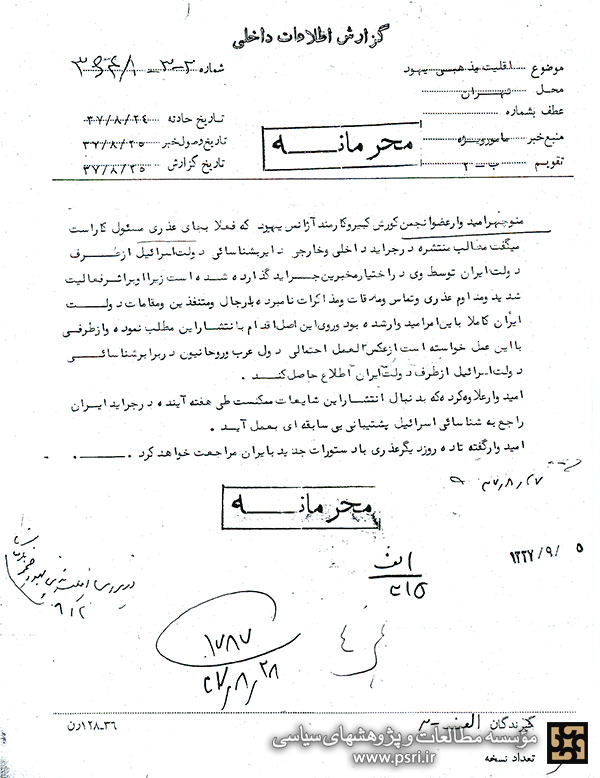 گزارش اطلاعات داخلی
موضوع اقلیت مذهبی یهود
شماره ۳۰۲ – ۳۹۴/۱
محل تهران
عطف بشماره
تاریخ حادثه ۳۷/۸/۲۴
منبع خبر مامور ویژه
تاریخ وصول خبر ۳۷/۸/۲۵
تقویم ب – ۲
تاریخ گزارش ۳۷/۸/۲۵
محرمانه
منوچهر امیدوار عضو انجمن کورش کبیر و کارمند آژانس یهود که فعلا بجای عذری مسئول کار است
میگفت مطالب منتشره در جراید داخلی و خارجی دایر بشناسائی دولت اسرائیل از طرف
دولت ایران توسط وی در اختیار مخبرین جراید گذارده شده است زیرا او براثر فعالیت
شدید و مداوم عذری و تماس و ملاقات و مذاکرات نامبرده با رجال و متنفذین و مقامات دولت
ایران کاملا باین امر امیدوار شده بود و روی این اصل اقدام با نتشار این مطلب نموده و از طرفی
با این عمل خواسته است از عکس العمل احتمالی دول عرب و روحانیون در برابر شناسائی
دولت اسرائیل از طرف دولت ایران اطلاع حاصل کند.
امیدوار علاوه کرد که بد نبال انتشار این شایعات ممکنست طی هفته آینده در جراید ایران
راجع به شناسائی اسرائیل پشتیبانی بی سابقه ای بعمل آید.
امیدوار گفته تا ده روز دیگر عذری با دستورات جدید بایران مراجعت خواهد کرد.
۳۷/۸/۲۷
محرمانه
۵ /۹/ ۱۳۳۷
الف
۲۱۵
۹/۲
۱۷۸۷
۳۷/۸/۲۸
گیرندگان الف – ۳
۳۶–۱۲۸رن
تعداد نسخه
مؤسسه مطالعات و پژوهشهای سیاسی
www.psri.ir